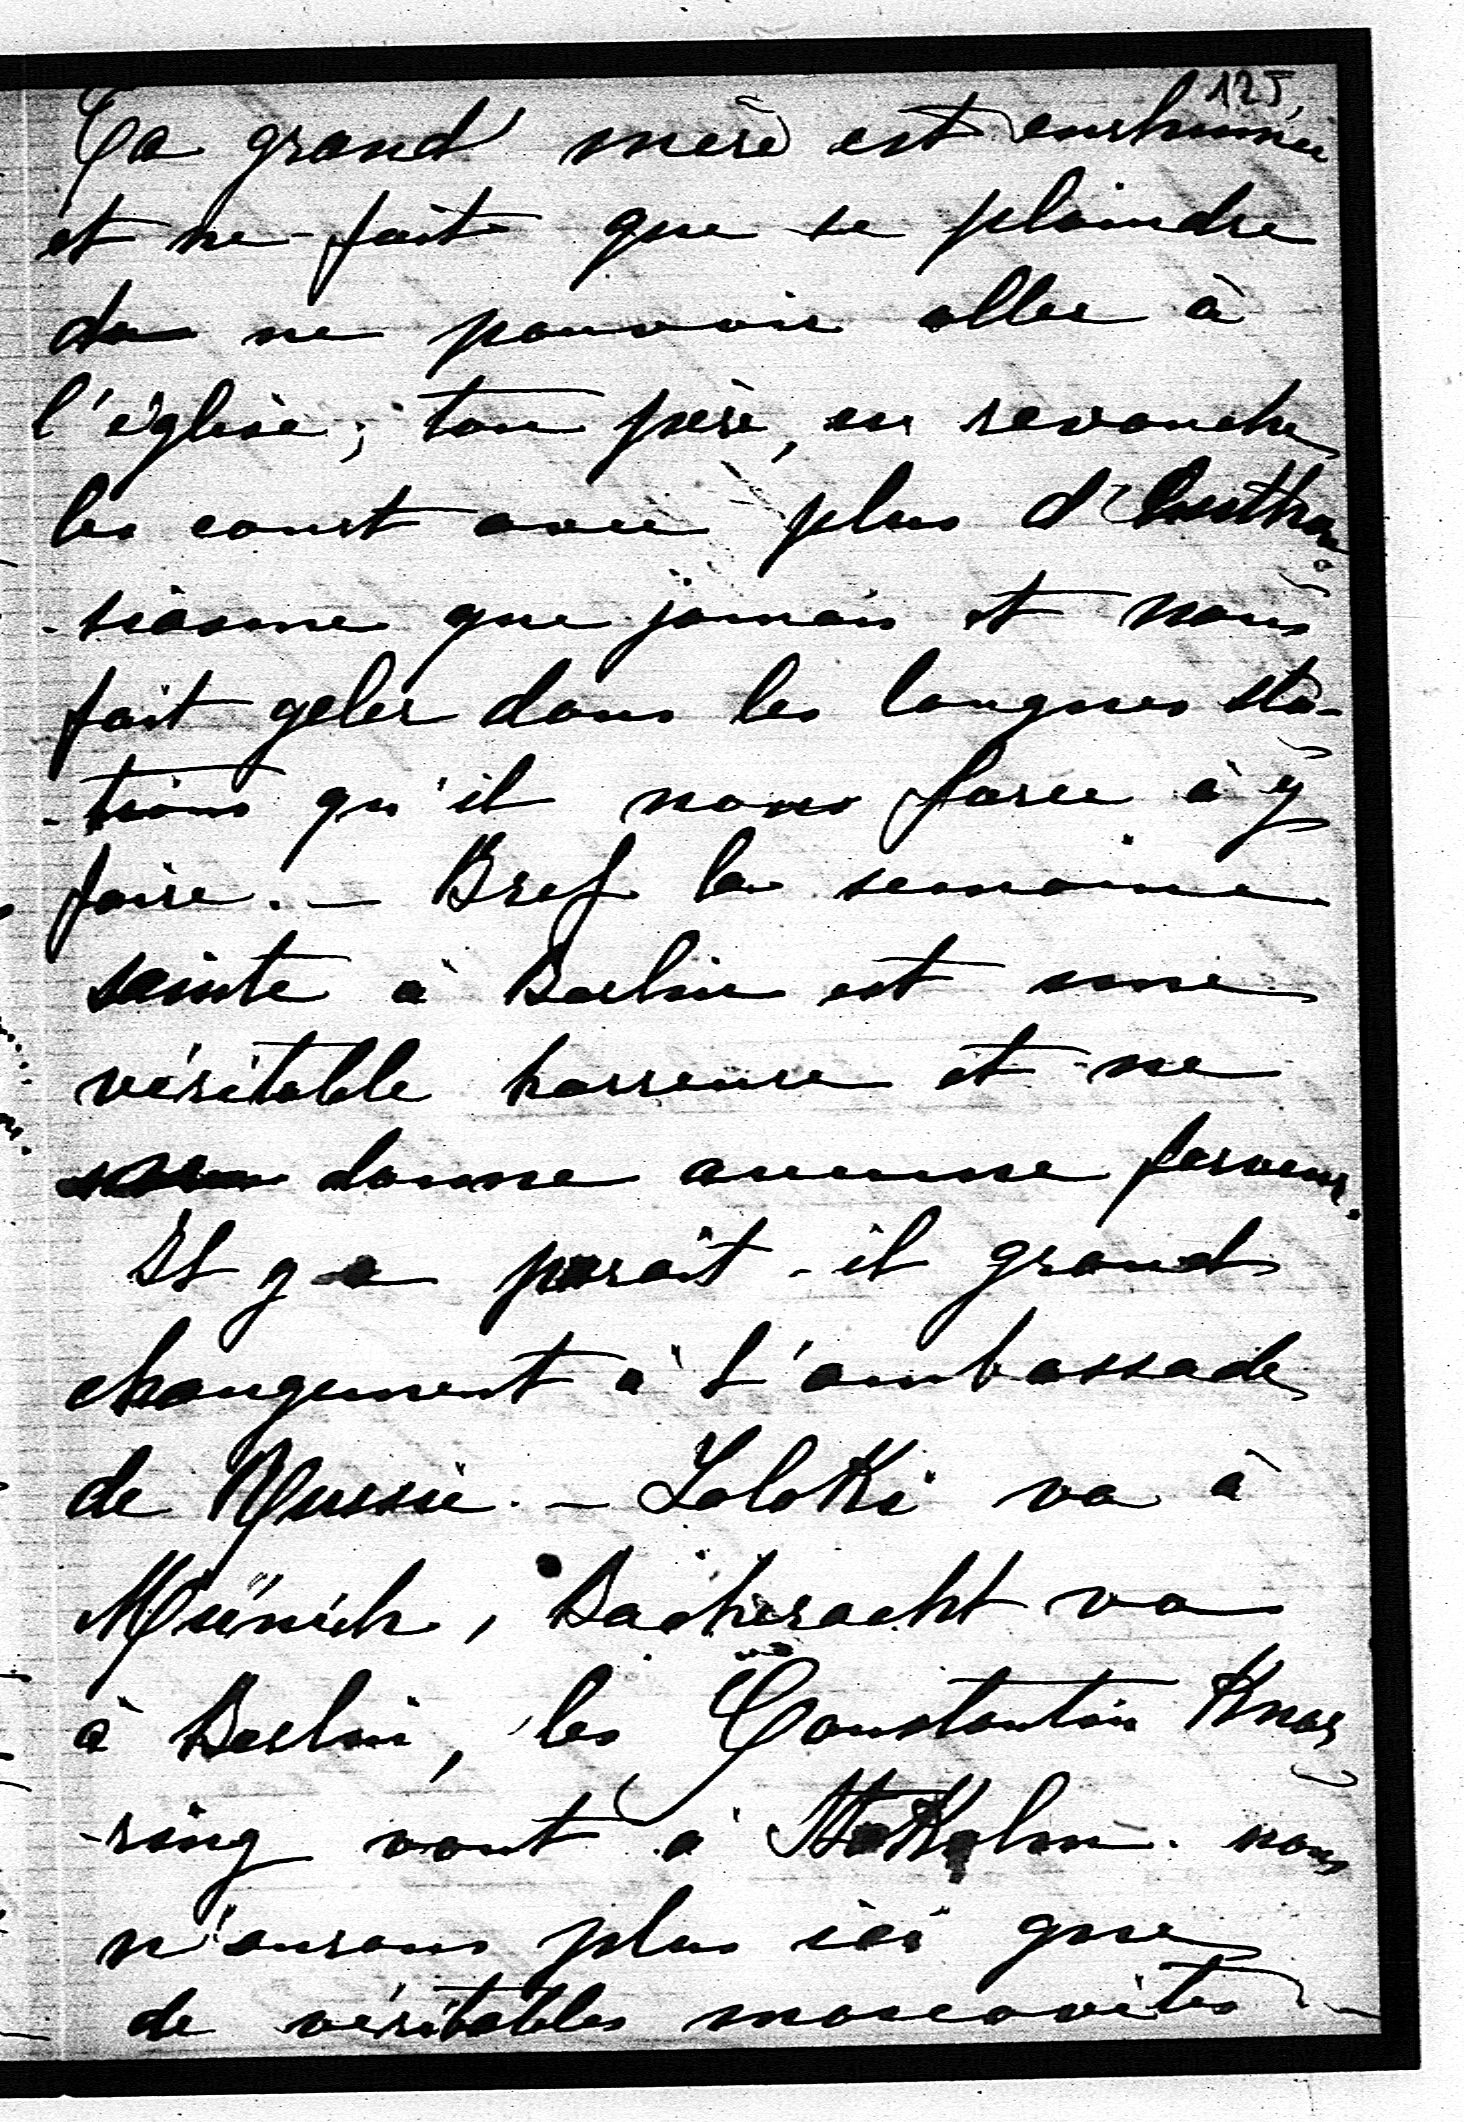 125
Ta grand' mère est enrhumée
et ne fait que se plaindre
de ne pouvoir aller à
l'église; ton père, en revanche
les court avec plus d'
-siasme que jamais et nous
fait geler dans les longues sta-
-tions qu'il nous force à y
faire. — Bref la semaine
sainte à Berlin est une
véritable horreur et ne
donne aucune ferveur.
Il y a parait-il grand
changement à l'ambassade
de Russie. — va à
Münich, Bacheracht va
à Berlin, les Constantin Knor
-ring vont à Stokholm. nous
n'aurons plus ici que
de véritables moscovites —